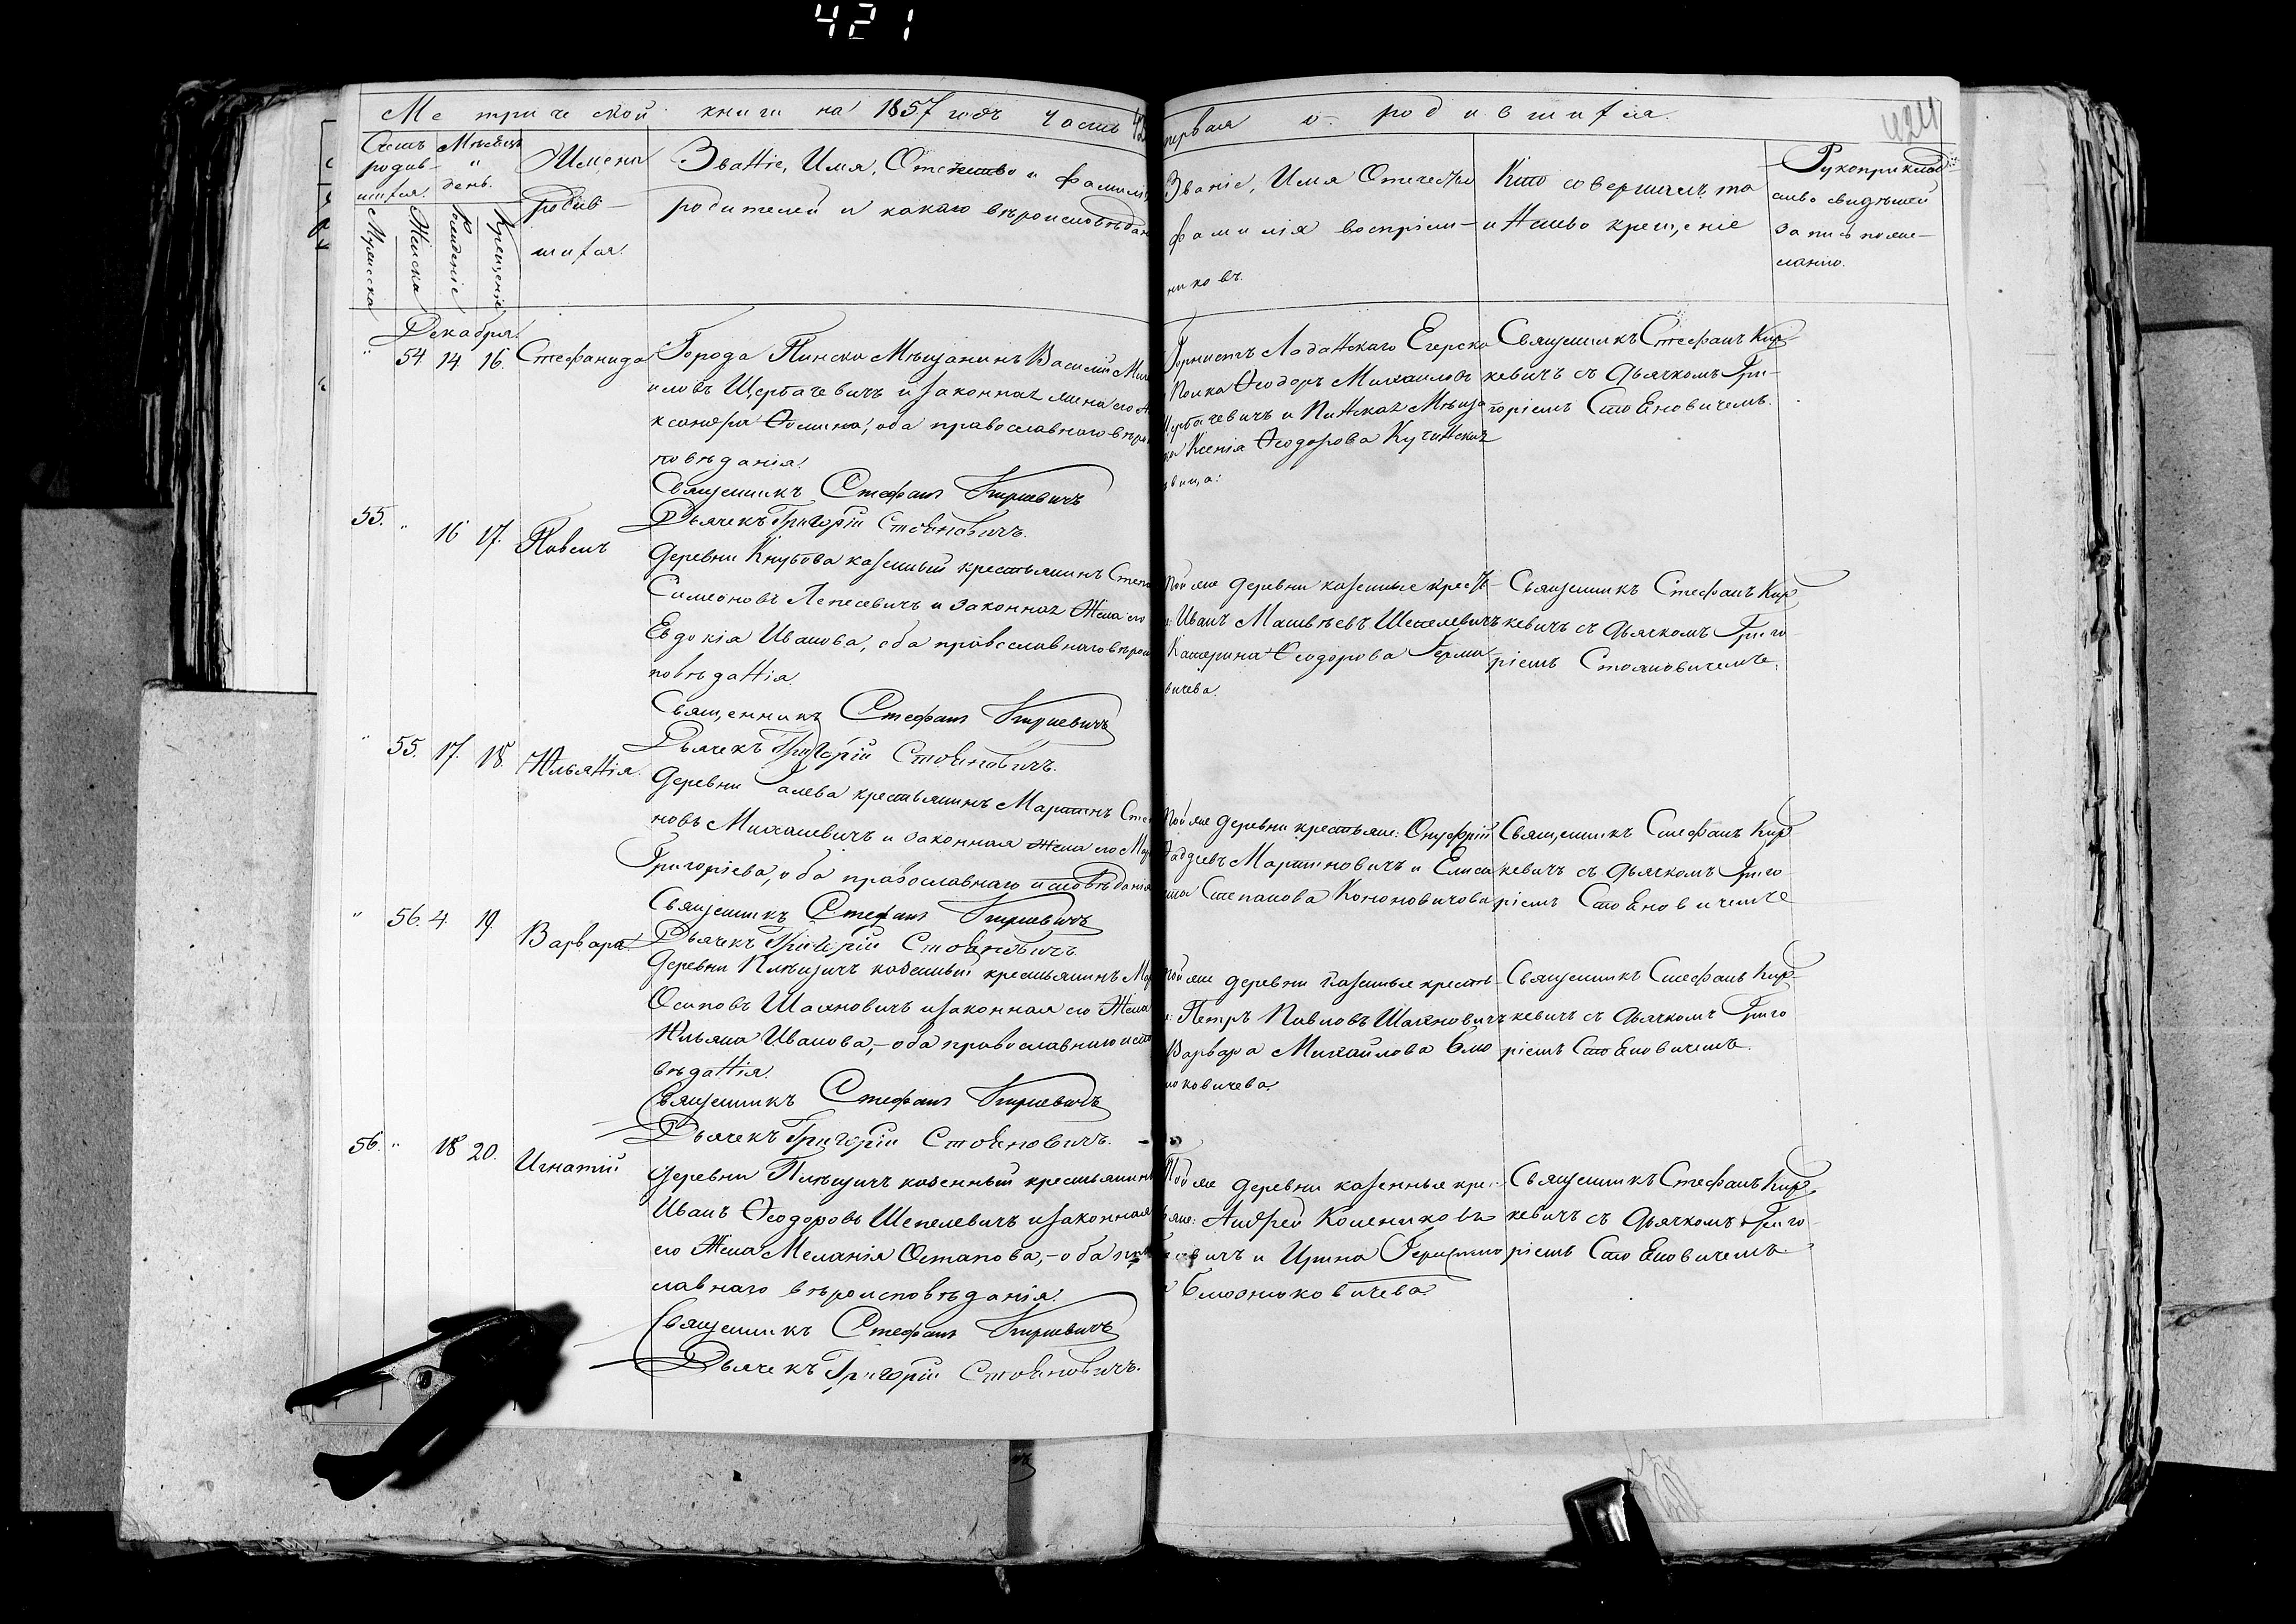 421
Метрической книги на 1857 годъ часть
первая о родившихся.
424
Счетъ родив-шихся.
Мѣсяцъ и день.
Мужеска
Женска
Рожденіе
Крещеніе
Имена
Родив-
шихся.
Званіе, Имя, Отчество и фамилія
родителей и какаго вѣроисповѣдан
Званіе, Имя Отечество
фамилія воспріем-
никовъ.
Кто совершилъ та
инство крещеніе
Рукоприклад
ство свидѣтелей
записи по же-
ланію.
Декабря.
" 54 14 16. Стефанида
Города Пинска Мѣщанинъ Василій Миха
иловъ Щербачевичъ и законная жена его А
ксандра Ѳомина, оба православнаго вѣро
повѣданія.
Священникъ Стефанъ Киркевичъ
Дьячекъ Григорій Стояновичъ.
Горнистъ Ладожскаго Егерска
Полка Ѳеодоръ Михаиловъ
Щербачевичъ и Пинская Мѣща
ка Ксенія Ѳеодорова Кучинская
вица:
Священникъ Стефанъ Кир-
кевичъ съ дьячкомъ Гри-
горіемъ Стояновичемъ.
55. " 16 17. Павелъ
деревни Кнубова казенный крестьянинъ Степа
Симеоновъ Лепесевичъ и законная Жена его
Евдокія Иванова, оба православнаго вѣрои
повѣданія.
Священникъ Стефанъ Киркевичъ
Дьячекъ Григорій Стояновичъ.
Той же деревни казенные крестъ-
Иванъ Матвѣевъ Шепелевичъ
Катерина Ѳеодорова Герма
вичева.
Священникъ Стефанъ Кир
кевичъ съ дьячкомъ Григо
ріемъ Стояновичемъ.
" 55. 17. 18. Юльянія.
деревни Галева крестьянинъ Мартинъ Сте
новъ Михалевичъ и законная жена его Мар
Григоріева, оба православнаго исповѣданія
Священникъ Стефанъ Киркевичъ
Дьячекъ Григорій Стояновичъ.
Той же деревни крестьяне: Онуфрій
Фаддѣевъ Мартиновичъ и Елиса
ета Степанова Кононовичова
Священникъ Стефанъ Кир
кевичъ съ дьячкомъ Григо
ріемъ Стояновичемъ
" 56. 4 19. Варвара.
деревни Плѣщичъ казенный крестьянинъ Мар
Осиповъ Шаяновичъ и законная его Жена
Юльяна Иванова, - оба православнаго испо
вѣданія.
Священникъ Стефанъ Киркевичъ
Дьячекъ Григорій Стояновичъ.
Той же деревни казенные крестъ-
Петръ Павловъ Шаяновичъ
Варвара Михайлова Блю
нюковичева.
Священникъ Стефанъ Кир-
кевичъ съ дьячкомъ Григо
ріемъ Стояновичемъ.
56. " 18 20. Игнатій
деревни Плѣщичъ казенный крестьянинъ
Иванъ Ѳеодоровъ Шепелевичъ и законная
его Жена Меланія Остапова, - оба право
славнаго вѣроисповѣданія.
Священникъ Стефанъ Киркевичъ
Дьячекъ Григорій Стояновичъ.
Той же деревни казенные кре
яне: Андрей
евичъ и Ирина
Блюзнюковичева
Священникъ Стефанъ Кир
кевичъ съ дьячкомъ Григо-
ріемъ Стояновичемъ.